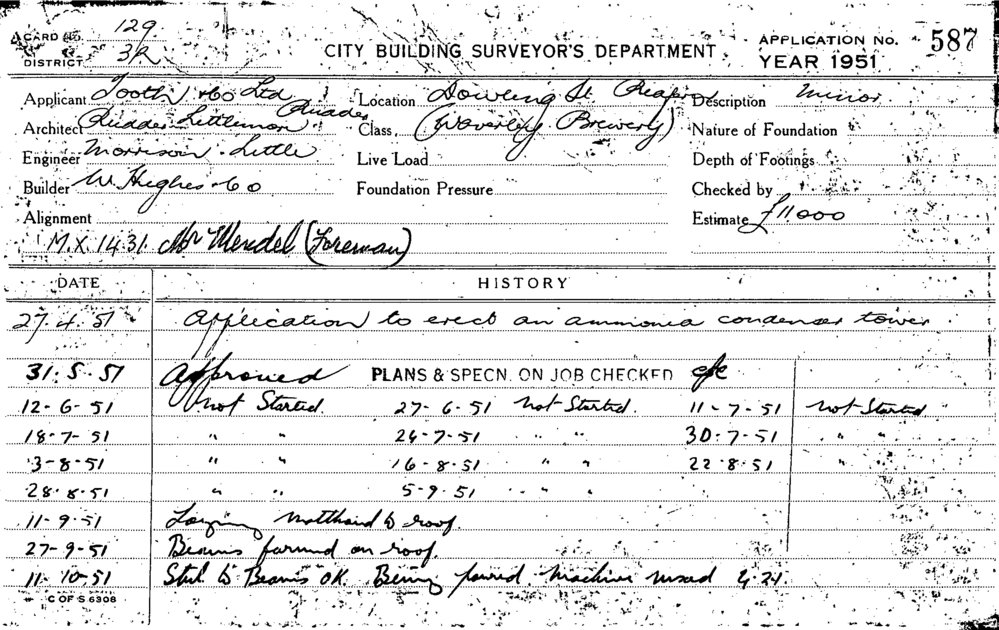 CARD NO. 129
DISTRICT 3R
CITY BUILDING SURVEYOR'S DEPARTMENT.
APPLICATION No. 587
YEAR 1951
Applicant Tooth & Co Ltd
Location Dowling St
Description Minor.
Architect Rudder Littlemore Rudder
Class. (Waverley Brewery)
Nature of Foundation
Engineer Morrison Little
Live Load
Depth of Footings
Builder W. Hughes & Co
Foundation Pressure
Checked by
Alignment
Estimate £11000
M.X. 1431. Mr Mendel (Foreman)
DATE HISTORY
27.4.51 Application to erect an ammonia condenser tower.
31.5.51 Approved PLANS & SPECN. ON JOB CHECKED
12-6-51 Not Started. 27-6-51 Not Started. 11-7-51 Not Started
18-7-51 " " 24-7-51 " " 30-7-51 " "
3-8-51 " " 16-8-51 " " 22-8-51 " "
28.8.51 " " 5-9-51 " "
11-9-51 Laying malthoid to roof.
27-9-51 Beams formed on roof.
11-10-51 Steel to Beams OK. Being poured. Machine mixed
C OF S 6308